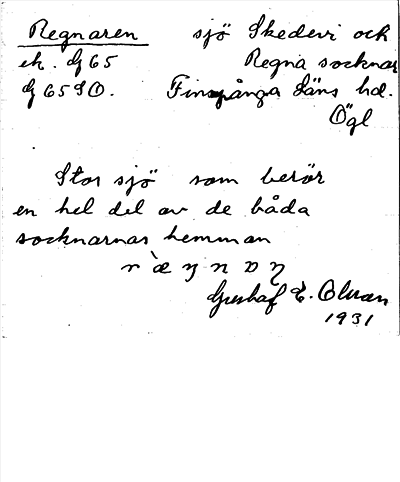 Regnaren sjö Skedevi och
ek. G65 Regna socknar
G 65 SO. Finspånga läns hd.
Ögl
Stor sjö som berör
en hel del av de båda
socknarnas hemman
Gustaf E.
1931